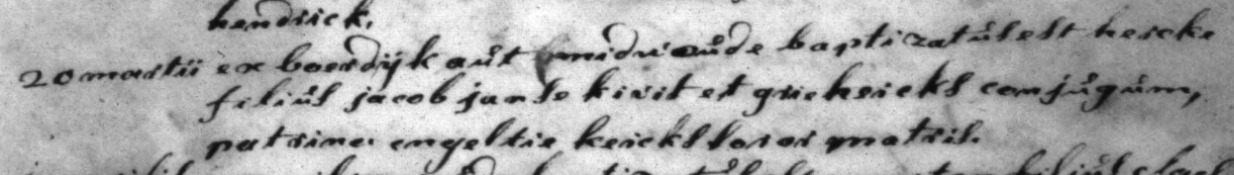 hendrick.
20 martii ex boerdijk aut midwoude baptizatus est heicke
filius jacob janse kivit et grie heicks conjugum,
patrine. engeltie heicks soror matris.